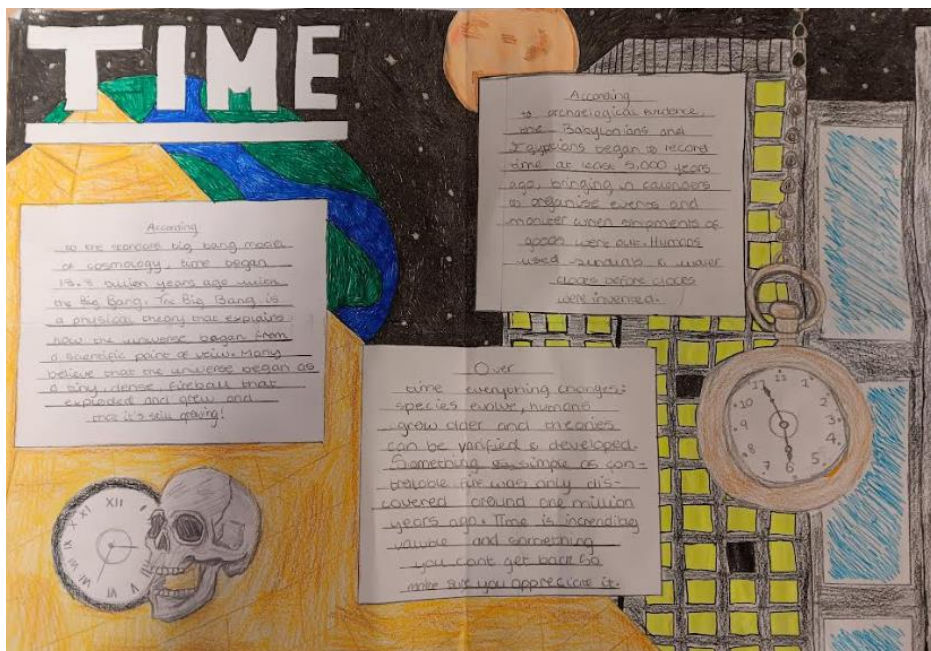 TIME
According
to the standard big bang model
of cosmology, time began
13.8 billion years ago when
the Big Bang. The Big Bang is
a physical theory that explains
how the universe began from
a scientific point of veiw. Many
believe that the universe began as
a tiny, dense, fireball that
exploded and grew and
that it's still growing!
According
to archaelogical evidence,
the Babylonians and
Egyptians began to record
time at least 5,000 years
ago, bringing in calenders
to organise events and
moniter when shipments of
goods were due. Humans
used sundials & water
clocks before clocks
were invented.
Over
time everything changes:
species evolve, humans
grow older and theories
can be varified & developed.
Something simple as con-
trolable fire was only dis-
covered around one million
years ago. Time is incredibley
valuble and something
you cant get back so
make sure you appreciate it.
XII
XI
X
IX
VIII
VII
VI
V
11
12
1
2
3
4
5
6
7
8
9
10